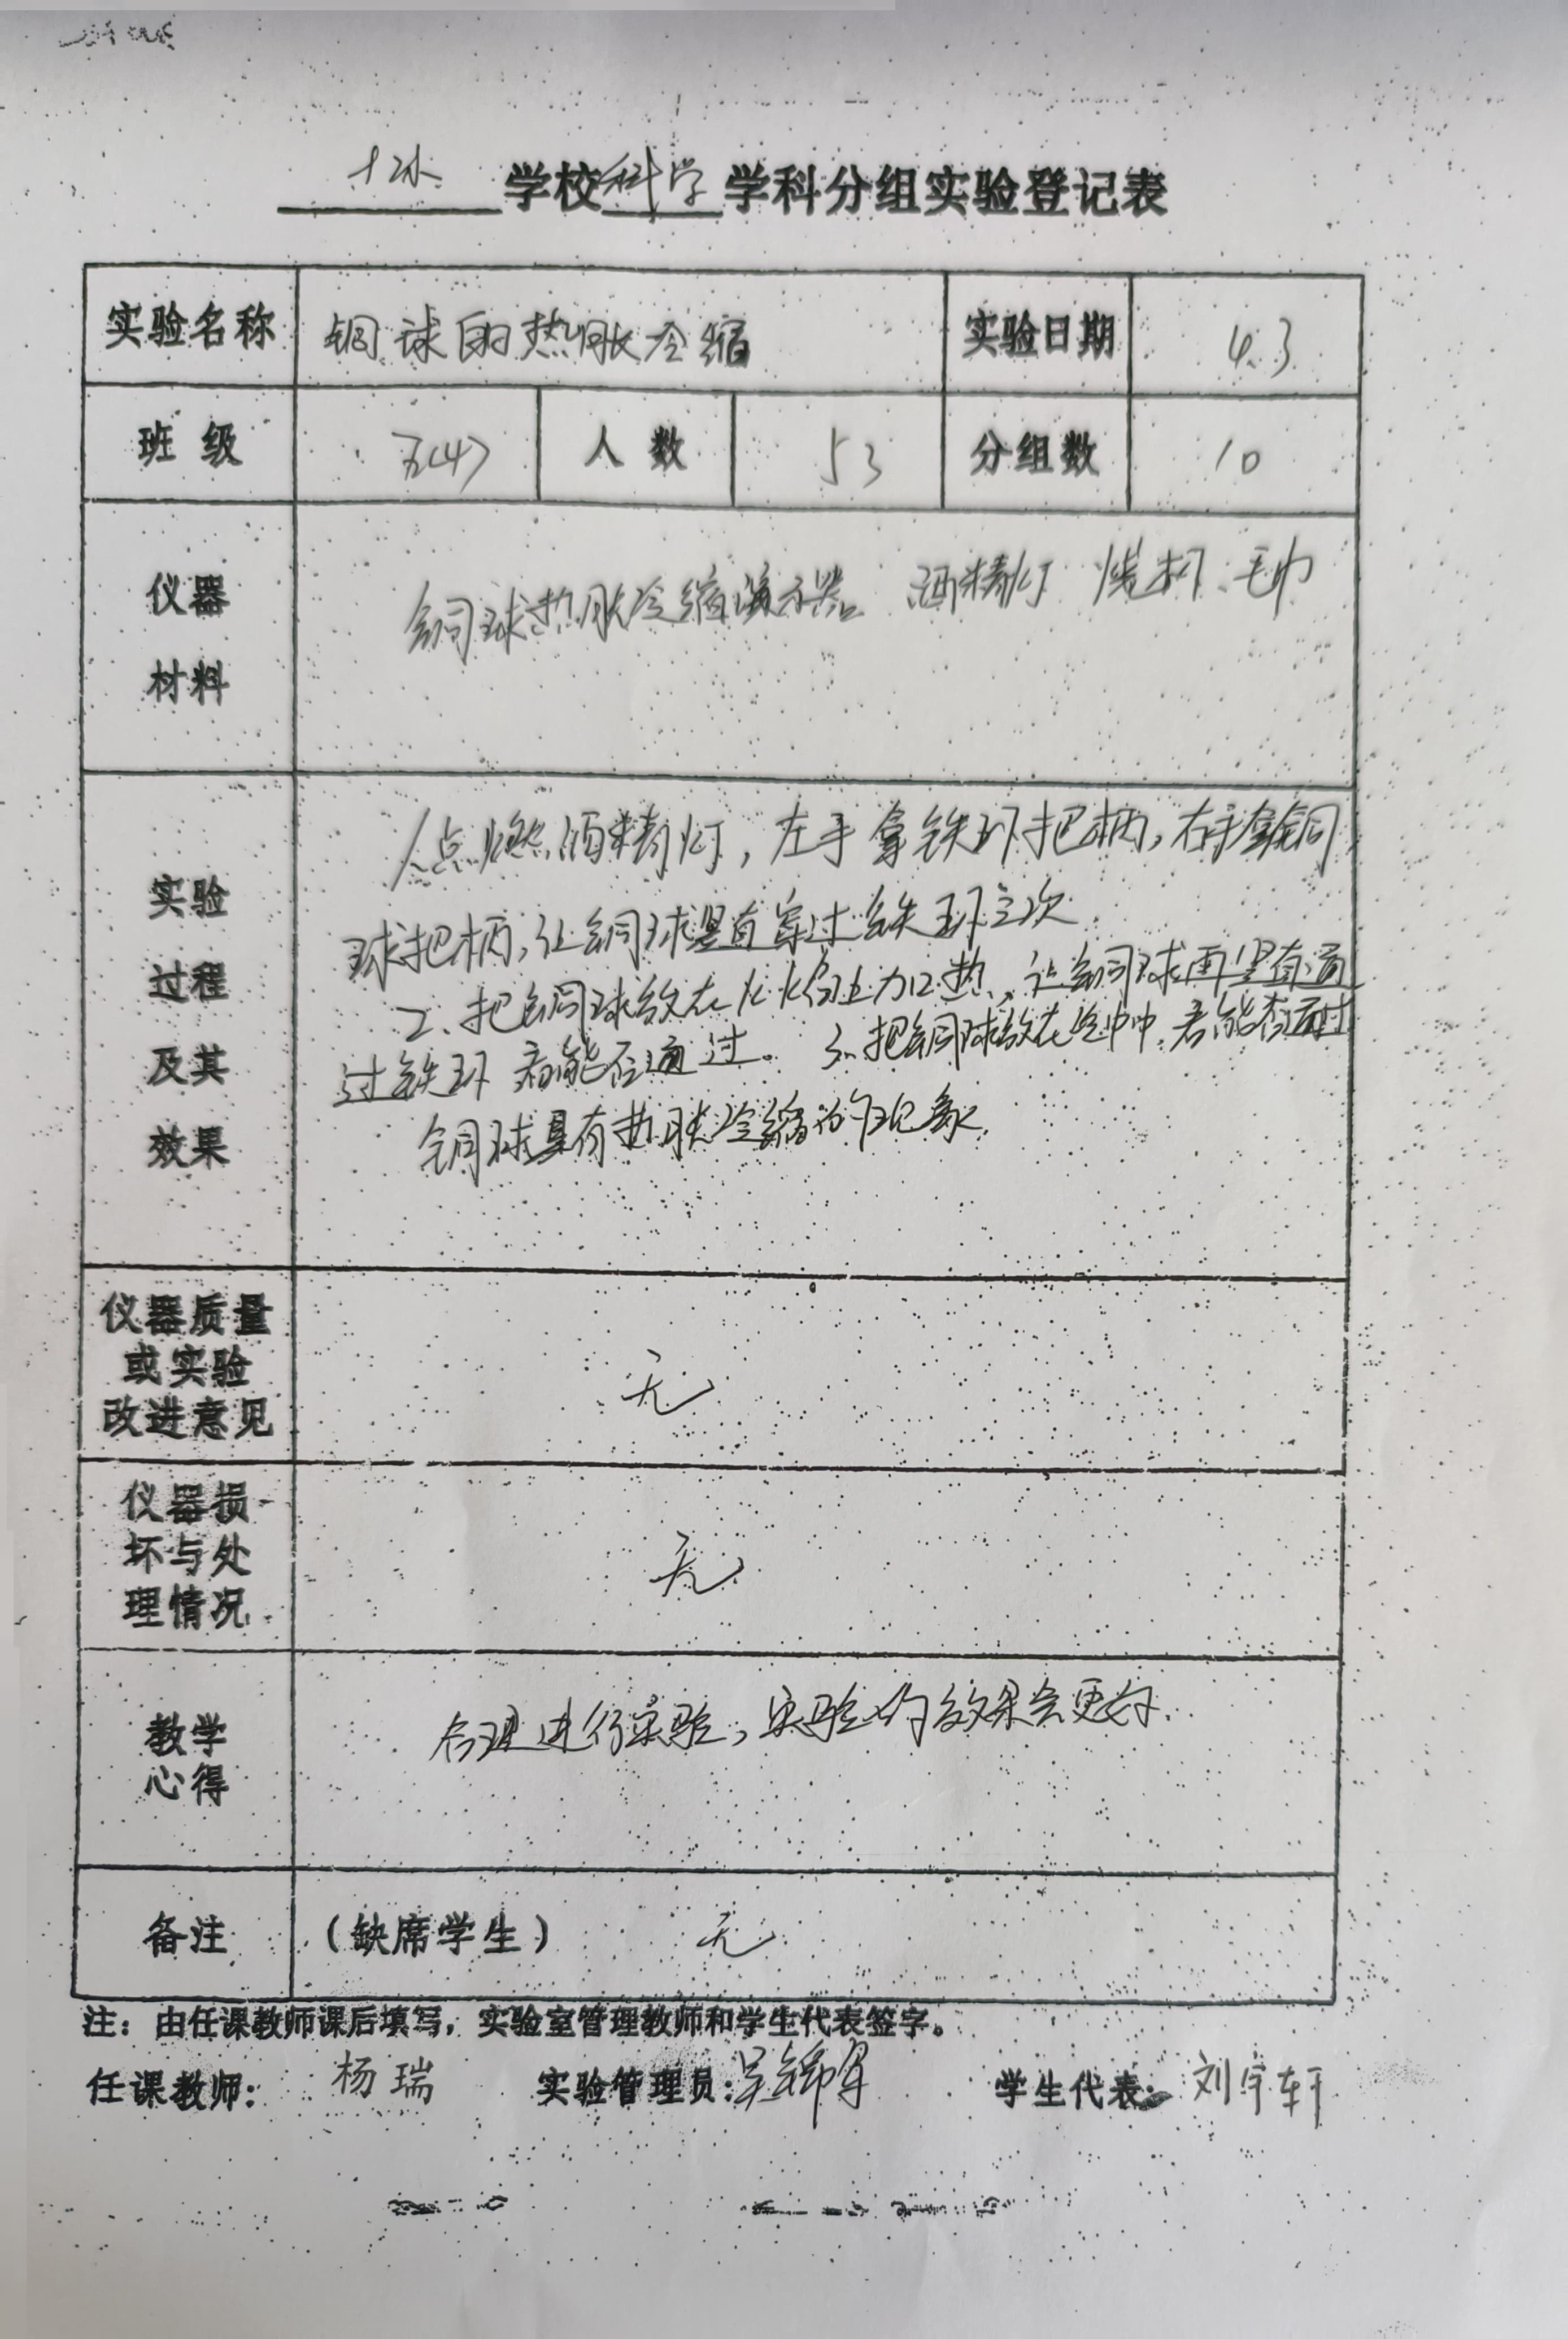 学校 科学 学科分组实验登记表
实验名称 铜球的热胀冷缩 实验日期 4.3
班级 五(4) 人数 53 分组数 10
仪器
材料
铜球热胀冷缩演示器 酒精灯 烧杯 毛巾
实验
过程
及其
效果
1.点燃酒精灯,左手拿铁环把柄,右手拿铜
球把柄,让铜球竖直穿过铁环三次.
2、把铜球放在火焰上加热,让铜球再竖直通
过铁环 看能否通过。 3、把铜球放在 中,看能否通过
铜球具有热胀冷缩的现象.
仪器质量
或实验
改进意见
无
仪器损
坏与处
理情况
无
教学
心得
合理进行实验,实验的效果会更好.
备注 (缺席学生) 无
注:由任课教师课后填写,实验室管理教师和学生代表签字。
任课教师: 杨瑞 实验管理员: 学生代表: 刘宇轩